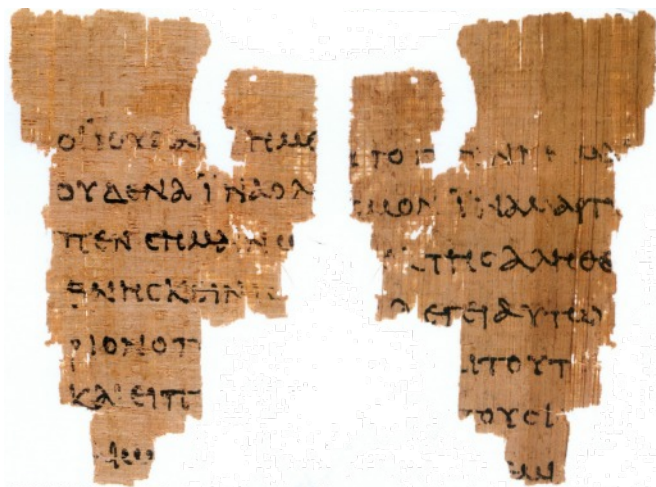 ΟΙ ΙΟΥΔΑΙ ΗΜΕ
ΟΥΔΕΝΑ ΪΝΑ Ο Λ
ΠΕΝ ϹΗΜΑΙΝΩ
ΘΝΗϹΚΕΙΝ
ΡΙΟΝ Ο Π
ΚΑΙ ΕΙΠ
ϹΜΟΝ ΪΝΑ ΜΑΡΤ
ΤΗϹ ΑΛΗΘΕ
ΛΕΓΕΙ ΑΥΤΩ
ΑΙ ΤΟΥΤ
ΤΟΥϹ Ι